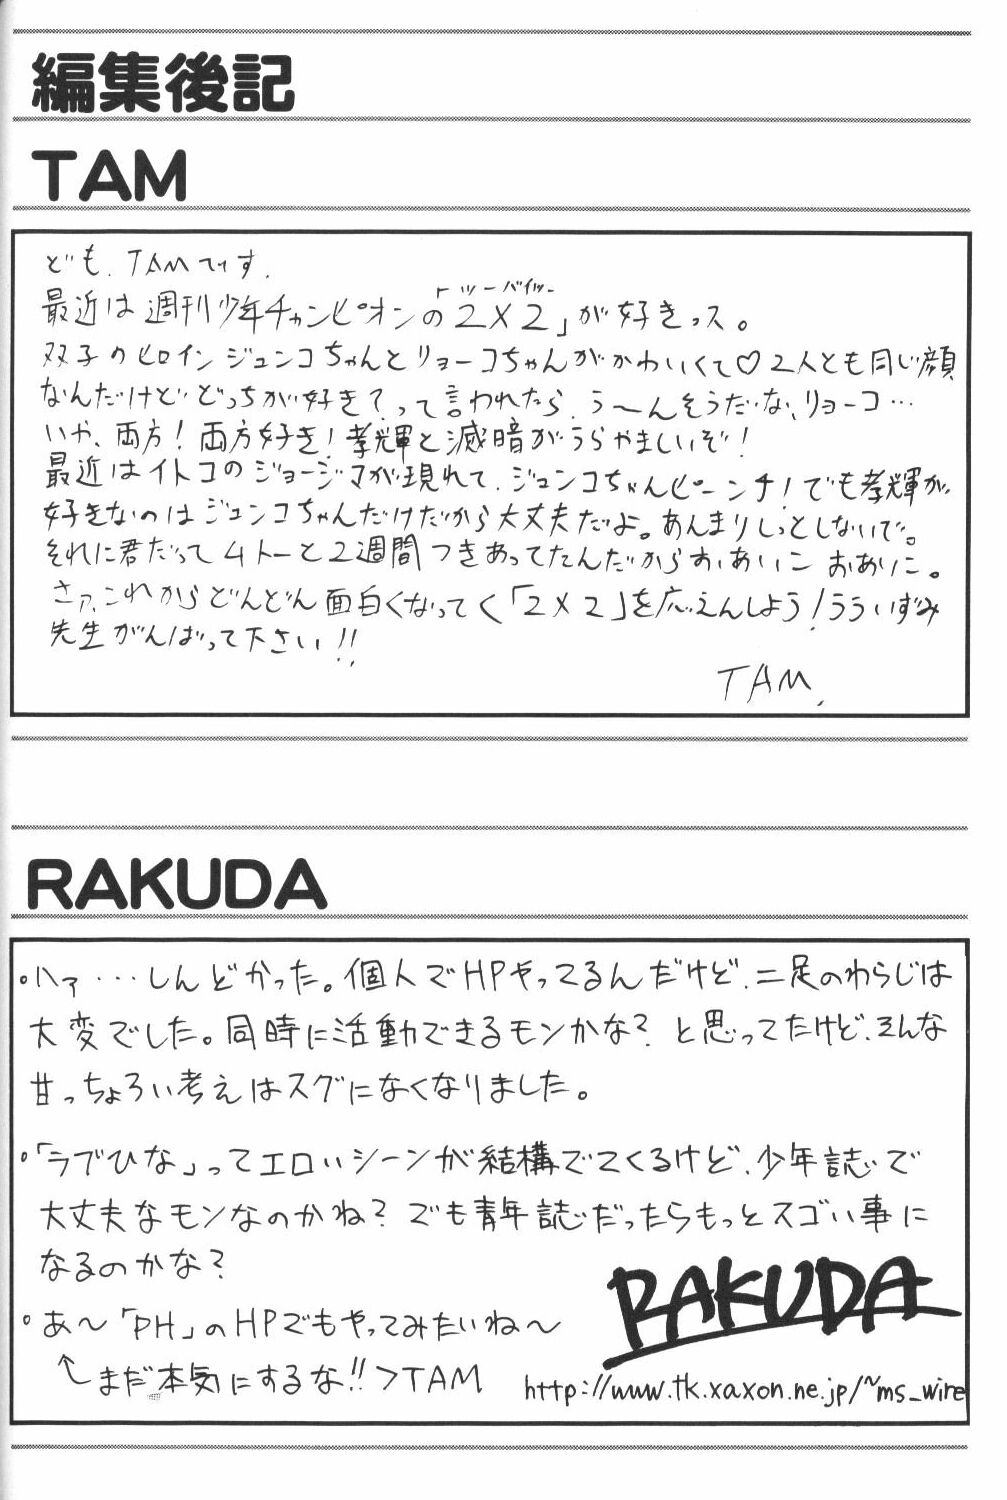 編集後記
TAM
ども、TAMです。
トゥーバイツー
最近は週刊少年チャンピオンの「2×2」が好きっス。
双子のヒロインジュンコちゃんとリョーコちゃんがかわいくて♡2人とも同じ顔
なんだけどどっちが好き?って言われたら、う〜んそうだな、リョーコ…
いや、両方!両方好き!孝輝と滅暗がうらやましいぞ!
最近はイトコのジョージマが現れて、ジュンコちゃんピーンチ!でも孝輝が
好きなのはジュンコちゃんだけだから大丈夫だよ。あんまりしっとしないで。
それに君だって ートーと2週間つきあってたんだからおあいこ おあいこ。
さァ、これからどんどん面白くなってく「2×2」を応えんしよう!ううぃずみ
先生がんばって下さい!!
TAM.
RAKUDA
・ハァ…しんどかった。個人でHPやってるんだけど、二足のわらじは
大変でした。同時に活動できるモンかな?と思ってたけど、そんな
甘っちょろい考えはスグになくなりました。
・「ラブひな」ってエロいシーンが結構でてくるけど、少年誌で
大丈夫なモンなのかね?でも青年誌だったらもっとスゴい事に
なるのかな?
RAKUDA
・あ〜「PH」のHPでもやってみたいね〜
↑まだ本気にするな!!>TAM
http://www.tk.xaxon.ne.jp/~ms_wire